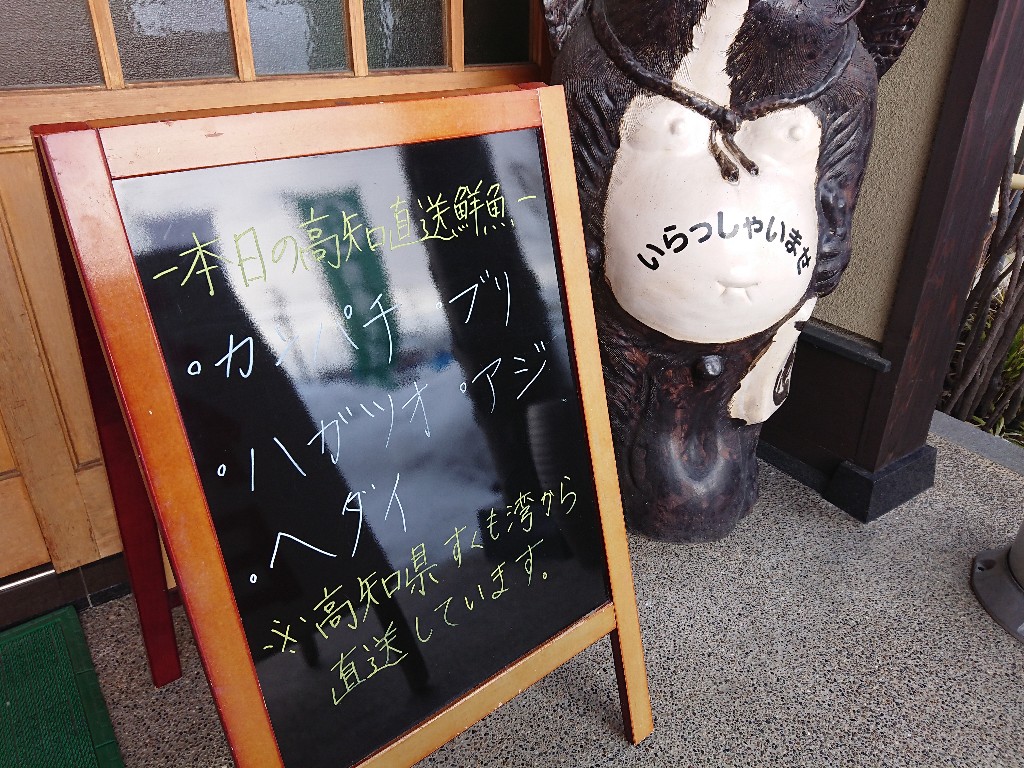 －本日の高知直送鮮魚－
・カンパチ ・ブリ
・ハガツオ ・アジ
・ヘダイ
※高知県すくも湾から
直送しています。
いらっしゃいませ